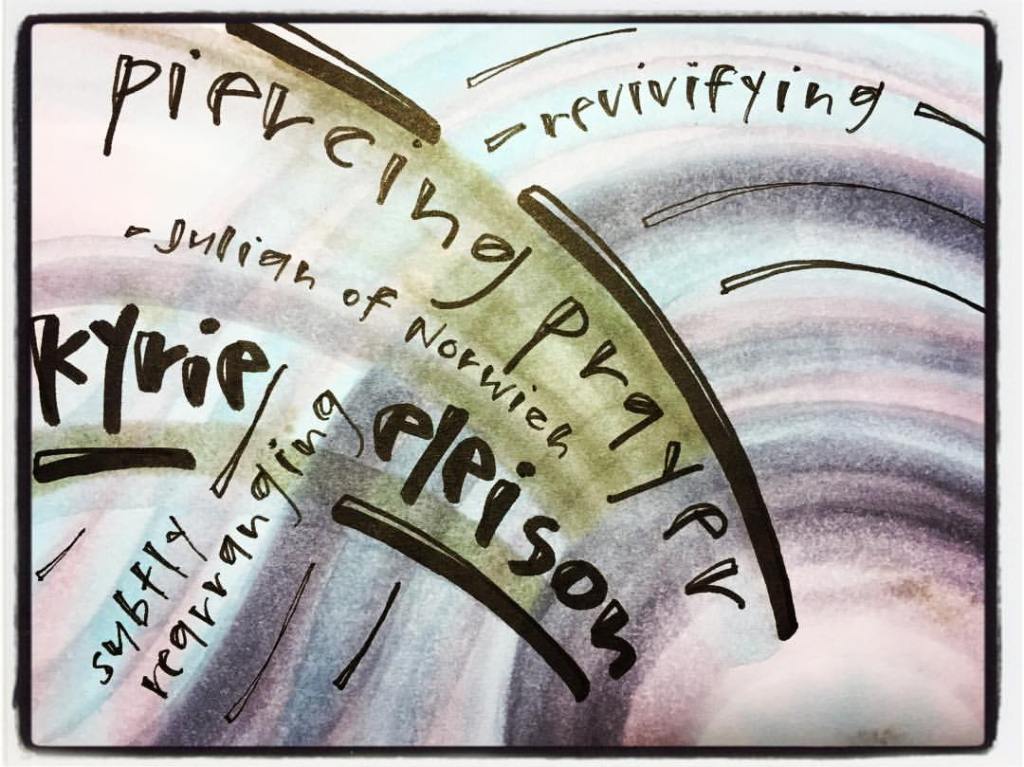 piercing prayer
-revivifying
-Julian of Norwich
kyrie eleison
subtly
rearranging